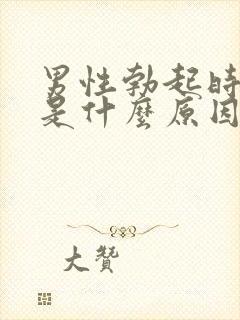 男性勃起時
是什麼原因
大贊